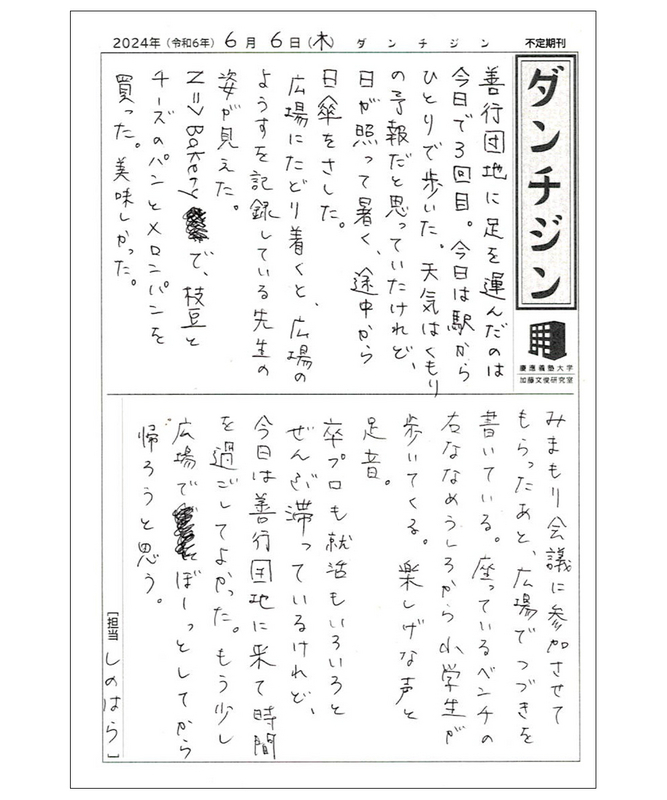 2024年（令和6年）6月6日（木）　ダンチジン　不定期刊
ダンチジン
慶應義塾大学
加藤文俊研究室
善行団地に足を運んだのは
今日で3回目。今日は駅から
ひとりで歩いた。天気はくもり
の予報だと思っていたけれど、
日が照って暑く、途中から
日傘をさした。
広場にたどり着くと、広場の
ようすを記録している先生の
姿が見えた。
N=> Bakeryで、枝豆と
チーズのパンとメロンパンを
買った。美味しかった。
みまもり会議に参加させて
もらったあと、広場でつづきを
書いている。座っているベンチの
右ななめうしろから小学生が
歩いてくる。楽しげな声と
足音。
卒プロも就活もいろいろと
ぜんぶ滞っているけれど、
今日は善行団地に来て時間
を過ごしてよかった。もう少し
広場でぼーっとしてから
帰ろうと思う。
［担当 しのはら］